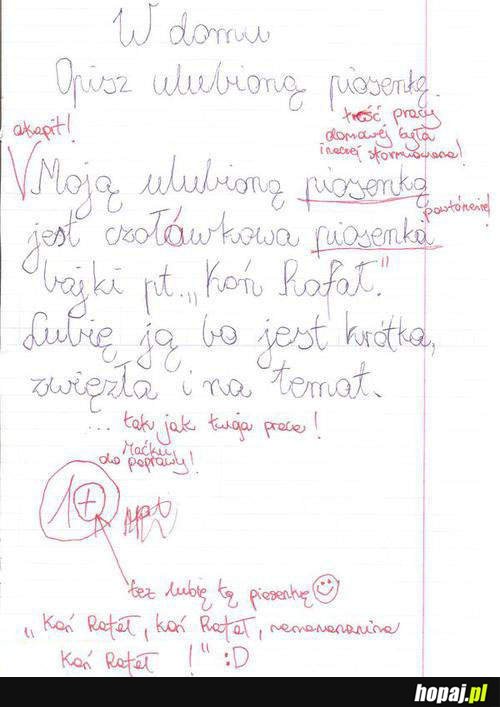 W domu
Opisz ulubioną piosenkę.
treść pracy
domowej była
inaczej sformułowana!
akapit!
Moją ulubioną piosenką
powtórzenie!
jest czołówkowa piosenka
bajki pt. „Koń Rafał."
Lubię ją bo jest krótka,
zwięzła i na temat.
... tak, jak twoja praca!
Maćku
do poprawy!
1+
też lubię tą piosenkę
„Koń Rafał, koń Rafał, nananananina
Koń Rafał !" :D
hopaj.pl